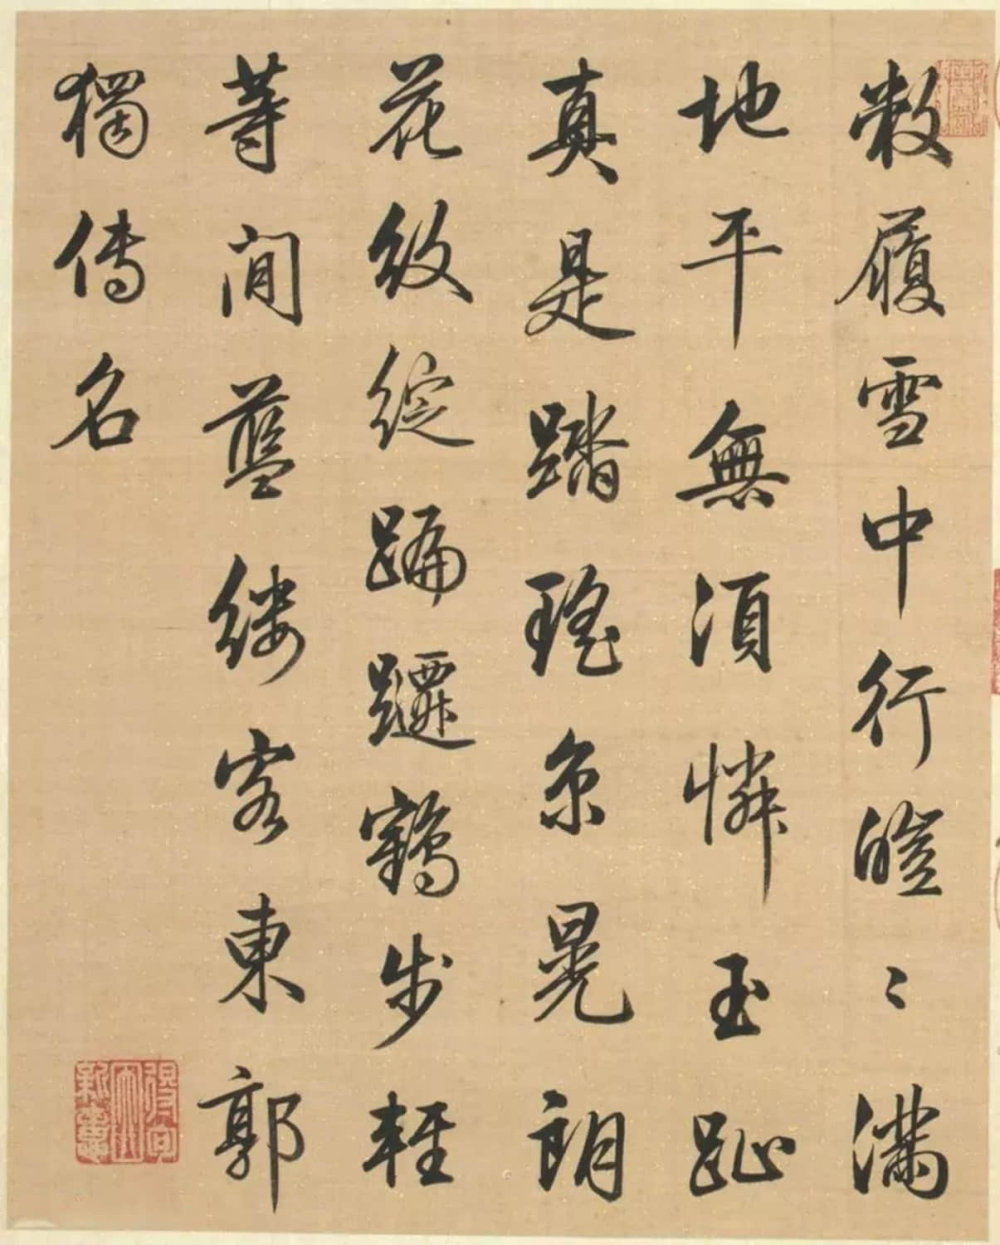 敝履雪中行皚〻滿
地平無須憐玉趾
真是踏瑤京晃朗
花紋綻蹁躚鶴步輕
等閒藍縷客東郭
獨傳名